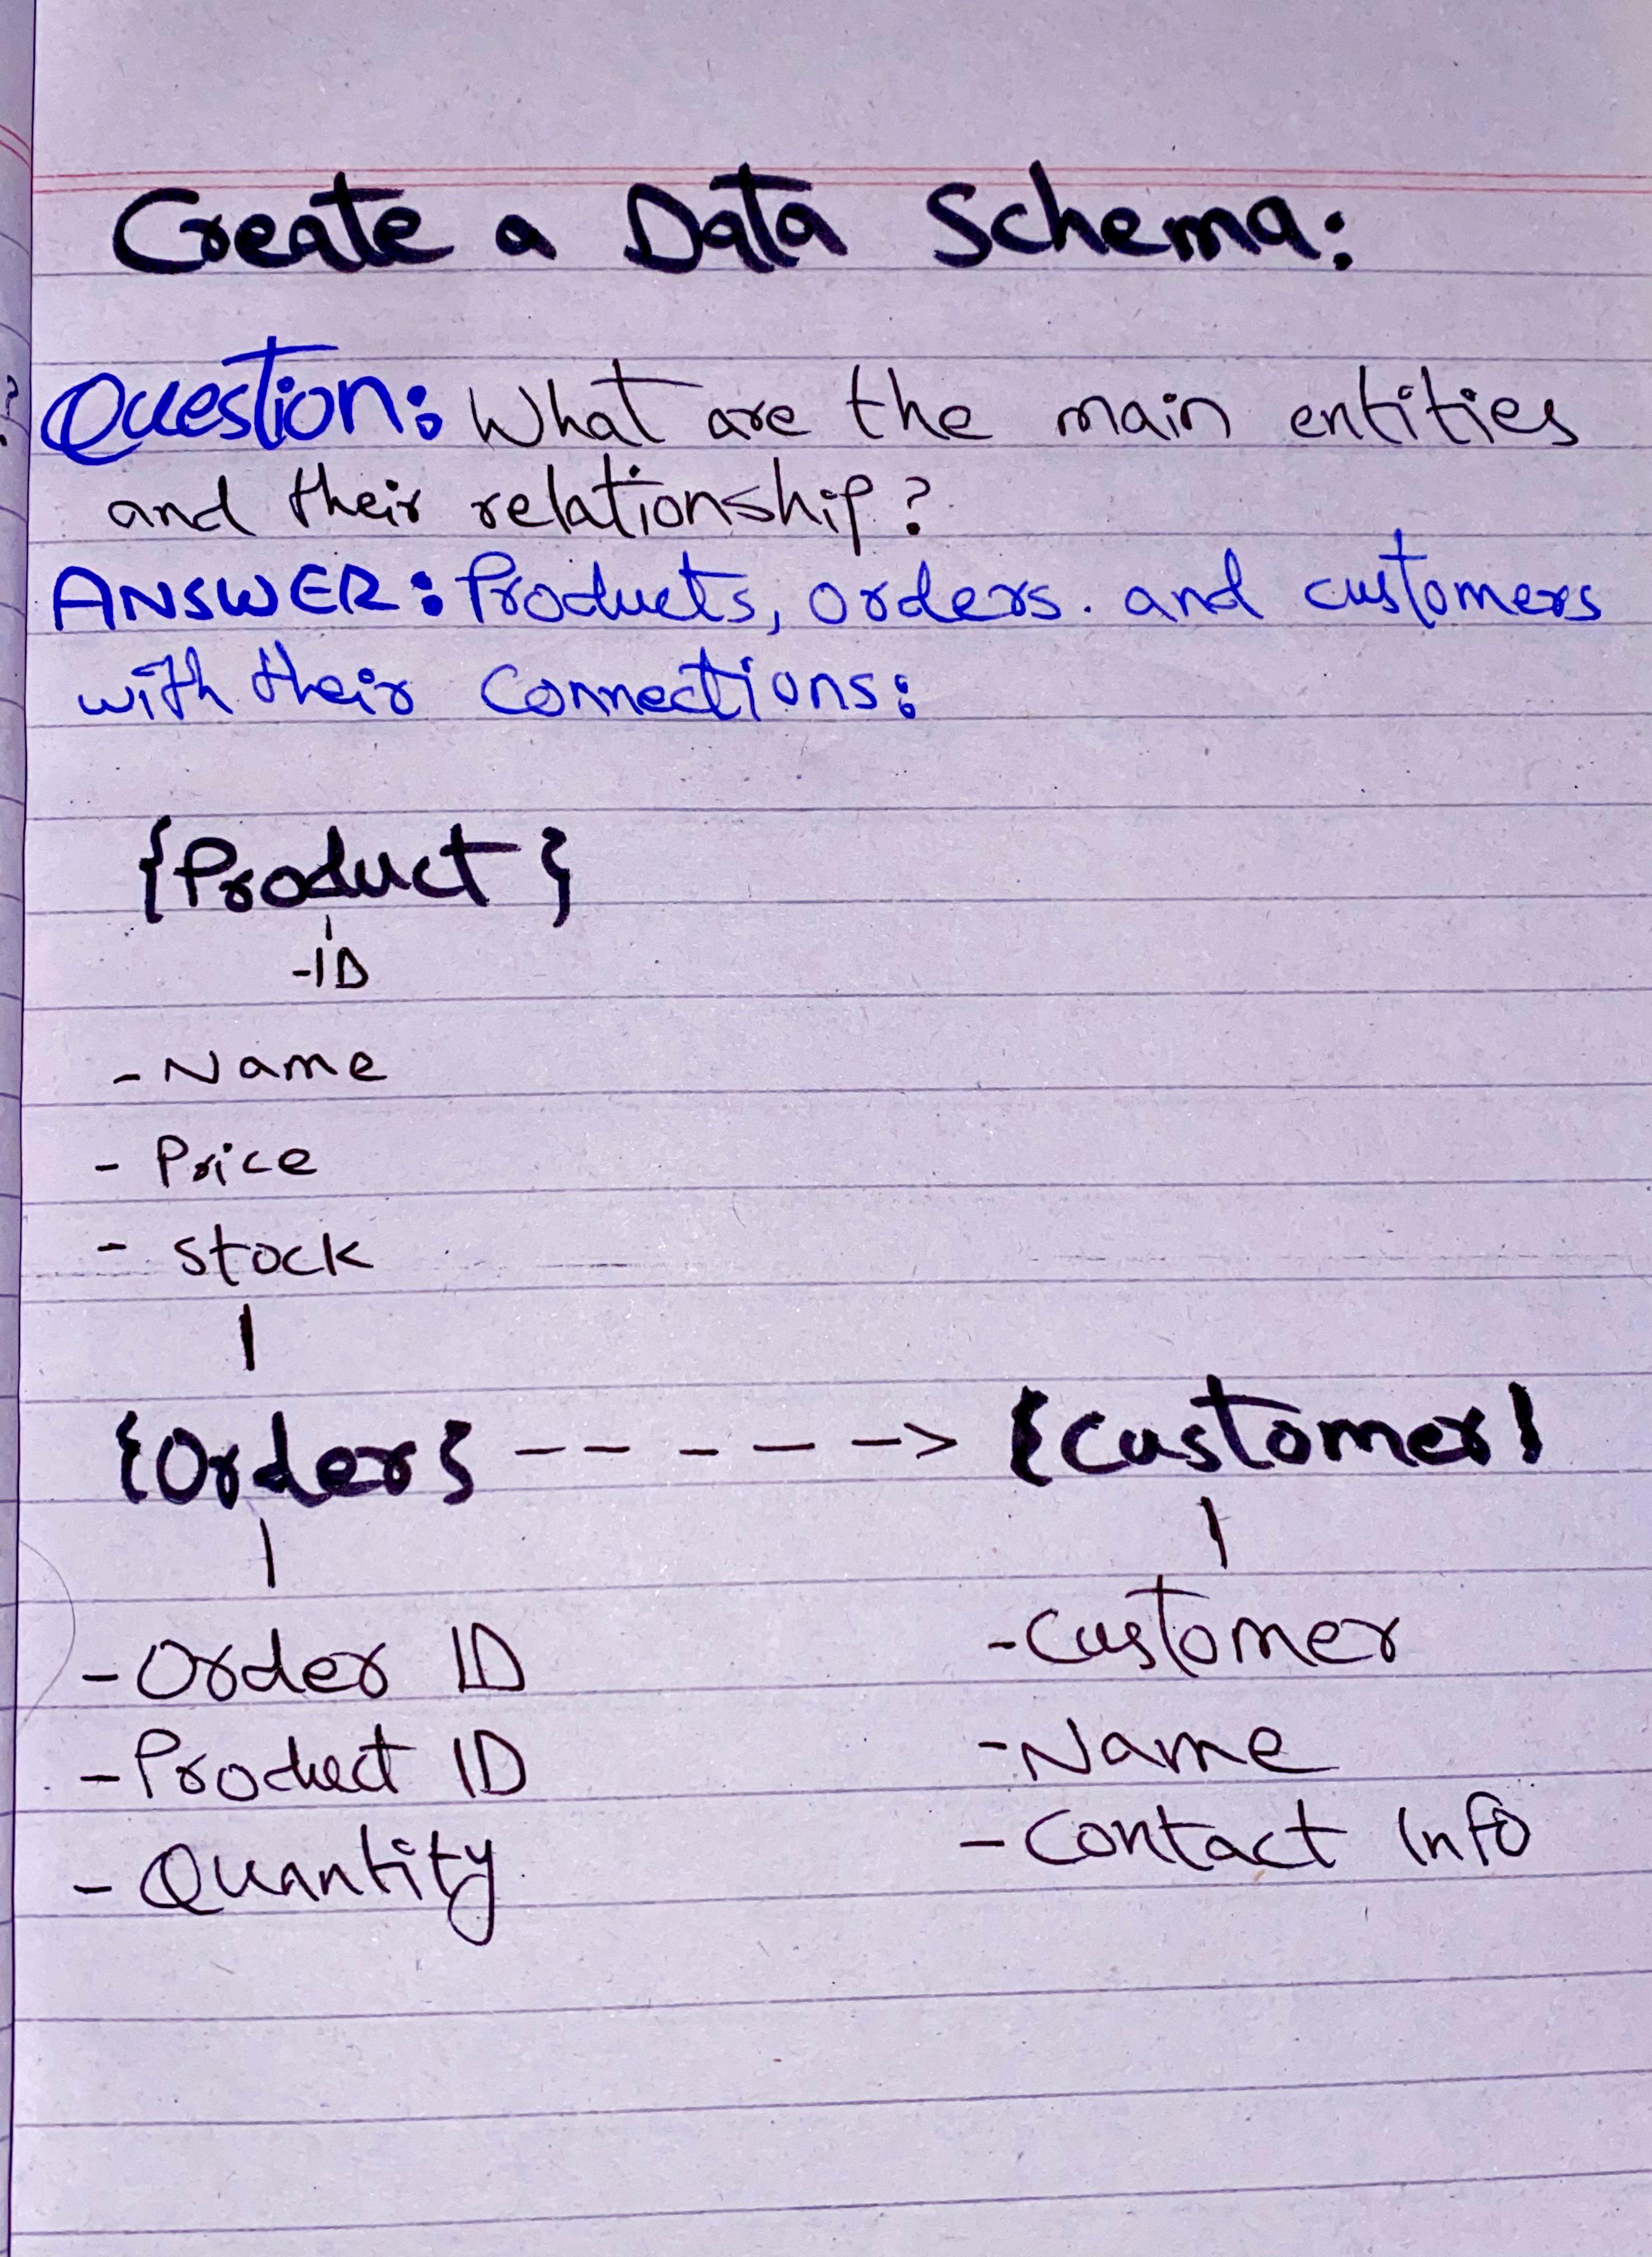 Create a Data Schema:
Question: What are the main entities
and their relationship?
ANSWER: Products, orders. and customers
with their Connections:
{Product}
-ID
- Name
- Price
- stock
{Order} - - - - -> {Customer}
- Order ID
- Customer
- Product ID
- Name
- Quantity
- Contact Info